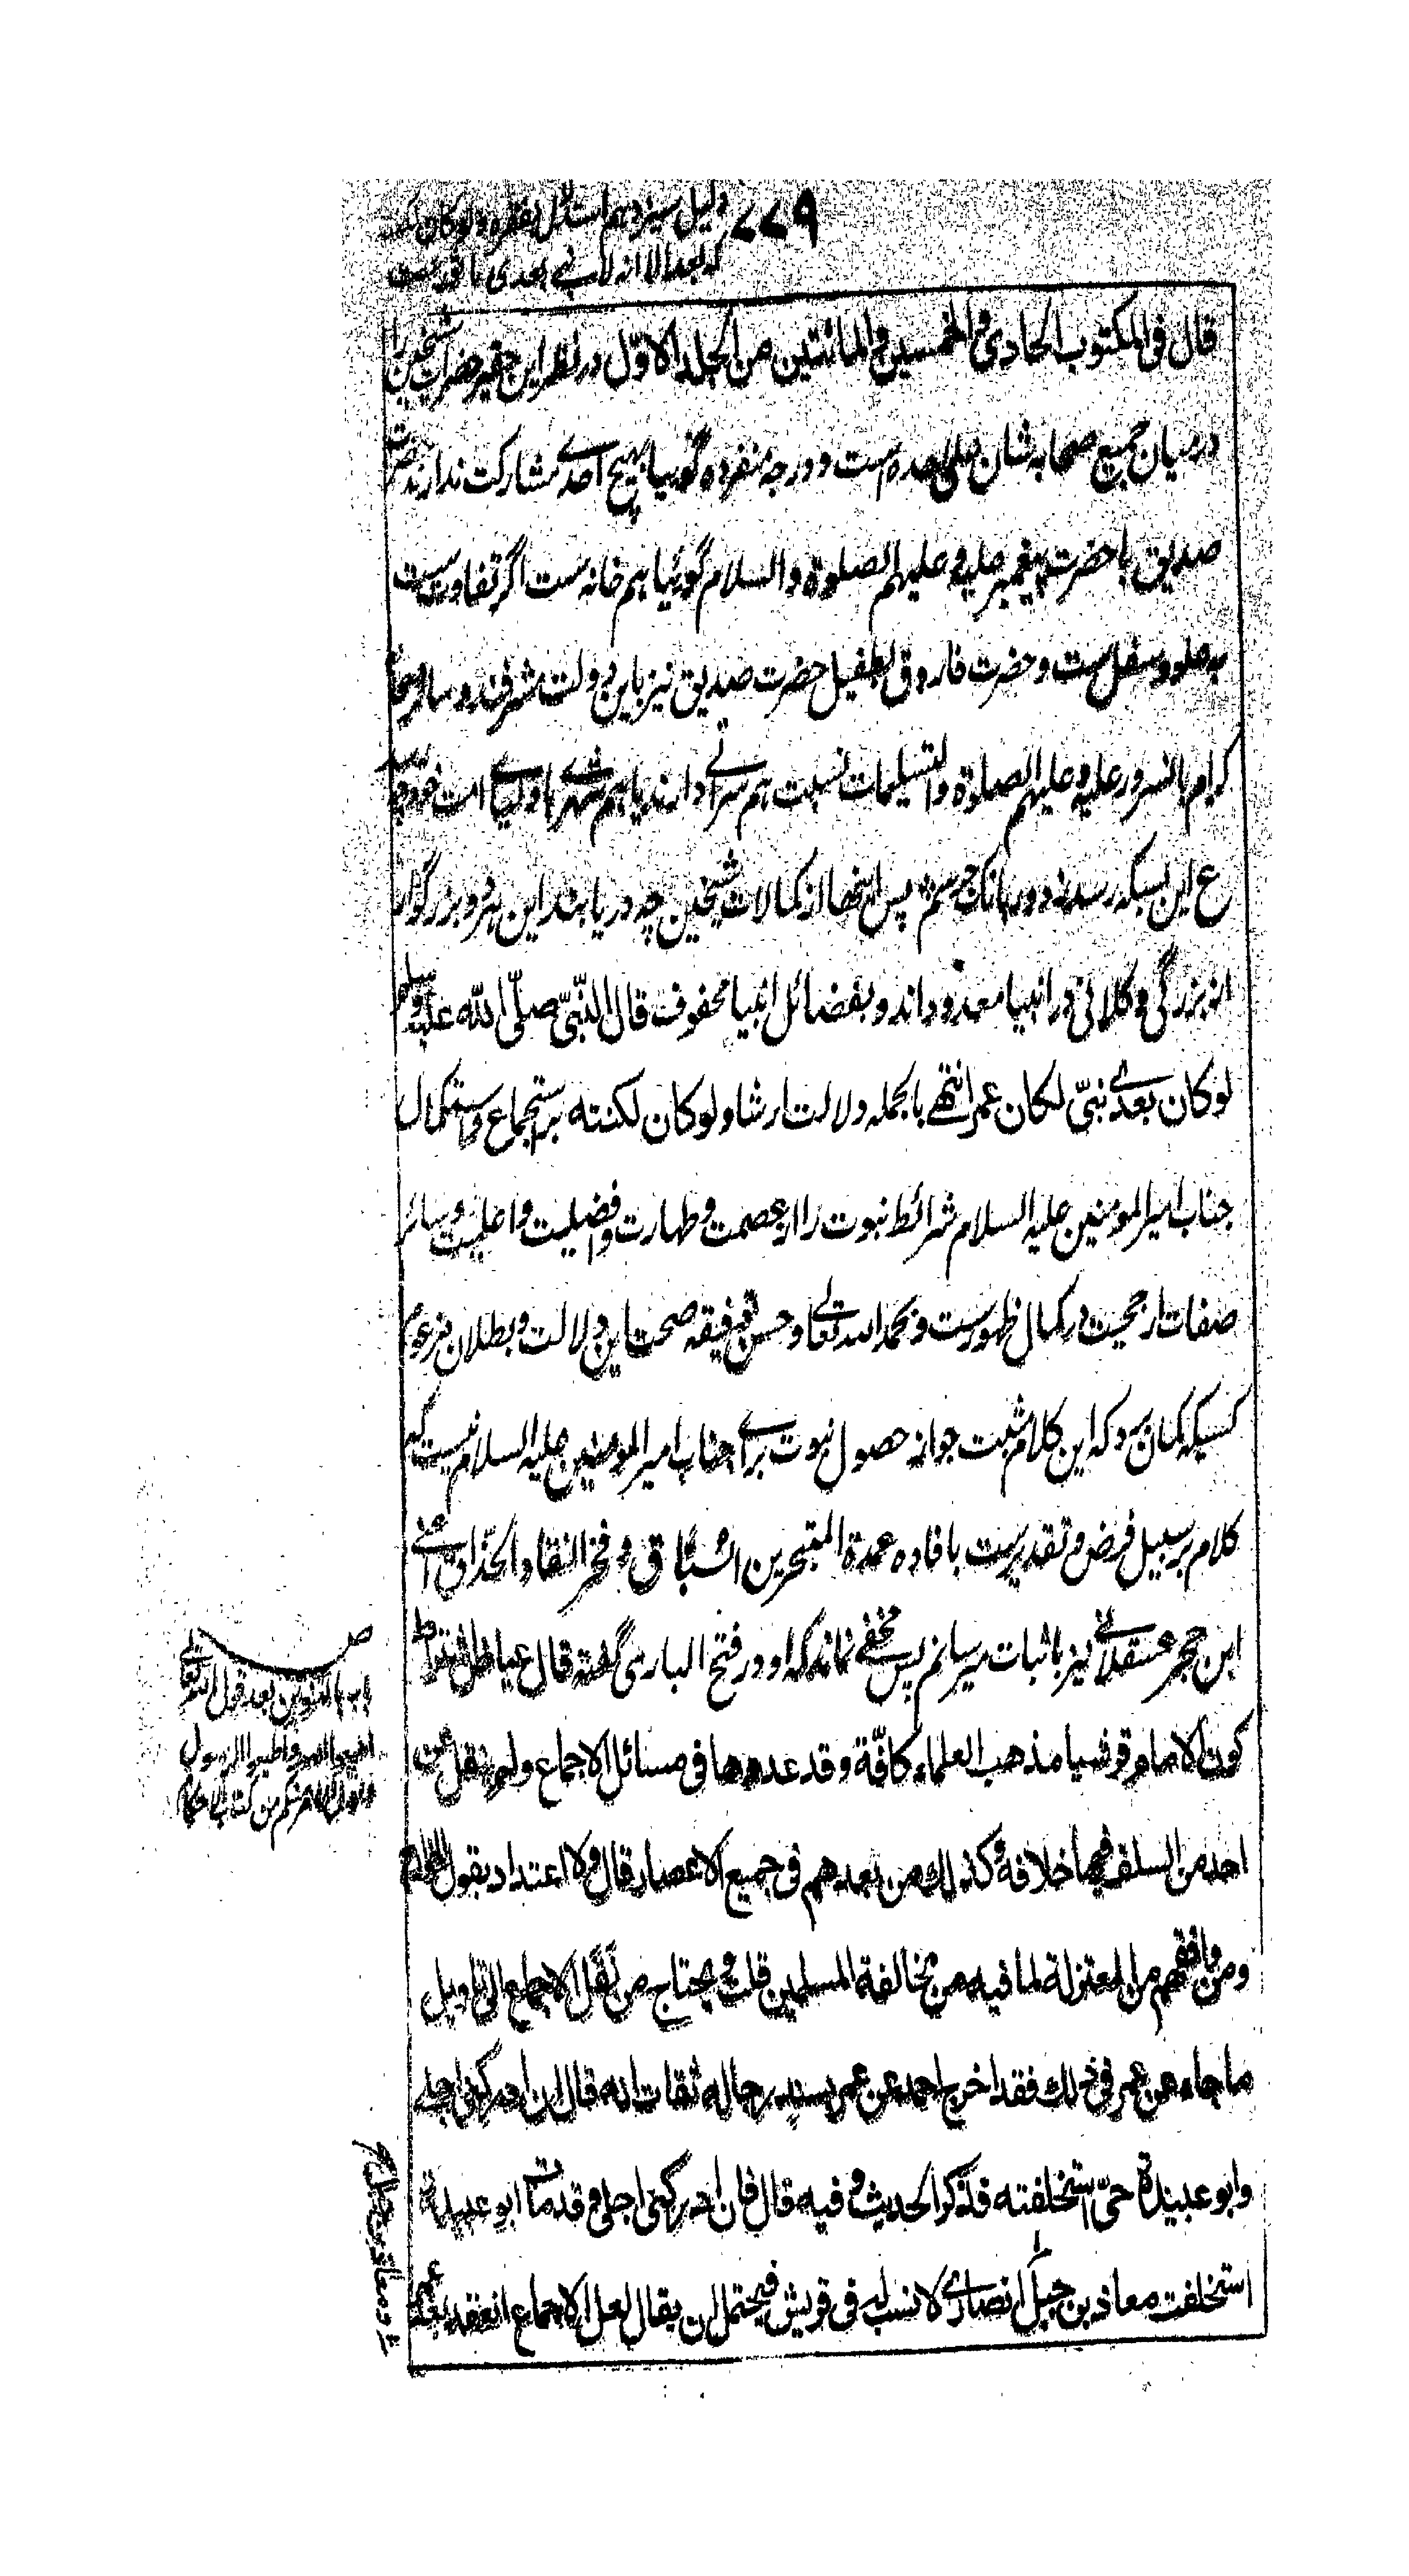 ۷۷۹
دلیل سیزدهم استدلال بفقره ولوکان لکنته
که بعد الا انه لا نبی بعدی ماثورست
قال فی المکتوب الحادی والخمسین والمائتین من الجلد الاول در نظر این حقیر حضرات شیخین را
درمیان جمیع صحابه شان علی‌حده است و درجه منفرده گوییا بهیچ احدے مشارکت ندارند حضرت
صدیق با حضرت پیغمبر علیه و علیهم الصلوة والسلام گوئیا هم خانه ست اگر تفاوت ست
به علو و سفل ست و حضرت فاروق بطفیل حضرت صدیق نیز باین دولت مشرفند و سائر صحابهٔ
کرام بآنسرور علیه وعلیهم الصلوة والتسلیمات نسبت هم سرائے دارند یا هم شهرے باولیاے امت خود چه رسد
ع این بسکه رسد ز دور بانگ جرسم پس اینها از کمالات شیخین چه دریابند این هر دو بزرگوار
از بزرگی و کلانی در انبیا معدود اند و بفضائل انبیا محفوف قال النبیّ صلّی الله علیه وسلم
لوکان بعدے نبیّ لکان عمر انتهے بالجمله دلالت ارشاد لوکان لکنته بر استجماع و استکمال
جناب امیر المومنین علیه السلام شرائط نبوت را از عصمت و طهارت و افضلیت و اعلمیت و سائر
صفات ارجحیت در کمال ظهورست و بحمد الله تعالے و حسن توفیقه صحت این دلالت و بطلان مزعوم
کسیکه گمان برد که این کلام مثبت جواز حصول نبوت براے جناب امیر المومنین علیه السلام نیست که
کلام بر سبیل فرض و تقدیرست بافاده عمدة المتبحرین السُبّاق و فخر النقاد الحذّاق اعنے
ابن حجر عسقلانے نیز باثبات میرسانم پس مخفے نماند که او در فتح الباری گفته قال عیاض اشتراط
کون الامام قرشیا مذهب العلماء کافّة وقد عدوها فی مسائل الاجماع ولم ینقل عن
احد من السلف فیها خلاف وکذلك من بعدهم فی جمیع الاعصار قال ولا اعتداد بقول الخوارج
ومن وافقهم من المعتزلة لما فیه من مخالفة المسلمین قلت ویحتاج من نقل الاجماع الی تاویل
ما جاء عن عمر فی ذلك فقد اخرج احمد عن عمر بسند رجاله ثقات انه قال ان ادرکنی اجلے
وابو عبیدة حیّ استخلفته فذکر الحدیث و فیه قال فان ادرکنی اجلی وقد مات ابو عبیدة
استخلفت معاذ بن جبل انصاری لا نسب له فی قریش فیحتمل ان یقال لعل الاجماع انعقد بعد
باب بالتنوین بعد قول الله تعالے
اطیعوا الله و اطیعوا الرسول
واولی الامر منکم من کتاب الاحکام